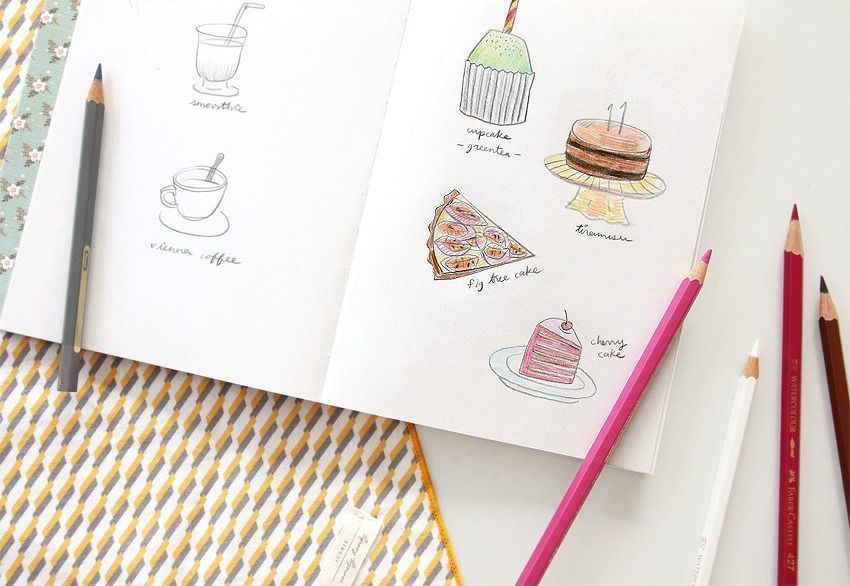 smoothie
vienna coffee
cupcake
- greentea -
tiramisu
fig tree cake
cherry
cake
WATERCOLOUR
FABER-CASTELL
427
WATER